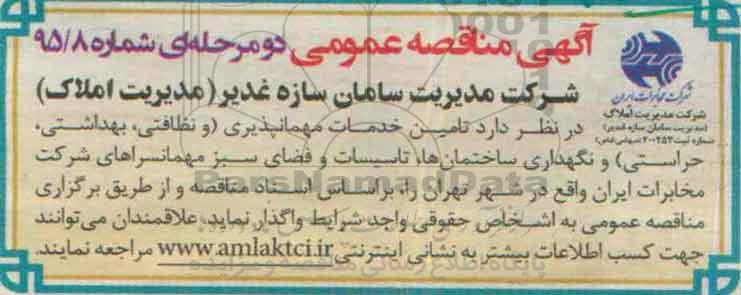 آگهی مناقصه عمومی دو مرحله‌ای شماره ۹۵/۸
شرکت مخابرات ایران
شرکت مدیریت املاک
(مدیریت سامان سازه غدیر)
شرکت مدیریت سامان سازه غدیر (مدیریت املاک)
در نظر دارد تامین خدمات مهمانپذیری (و نظافتی، بهداشتی،
حراستی) و نگهداری ساختمان‌ها، تاسیسات و فضای سبز مهمانسراهای شرکت
مخابرات ایران واقع در شهر تهران را، براساس اسناد مناقصه و از طریق برگزاری
مناقصه عمومی به اشخاص حقوقی واجد شرایط واگذار نماید، علاقمندان می‌توانند
جهت کسب اطلاعات بیشتر به نشانی اینترنتی www.amlaktci.ir مراجعه نمایند.
ParsNamadData
پایگاه اطلاع رسانی مناقصه و مزایده